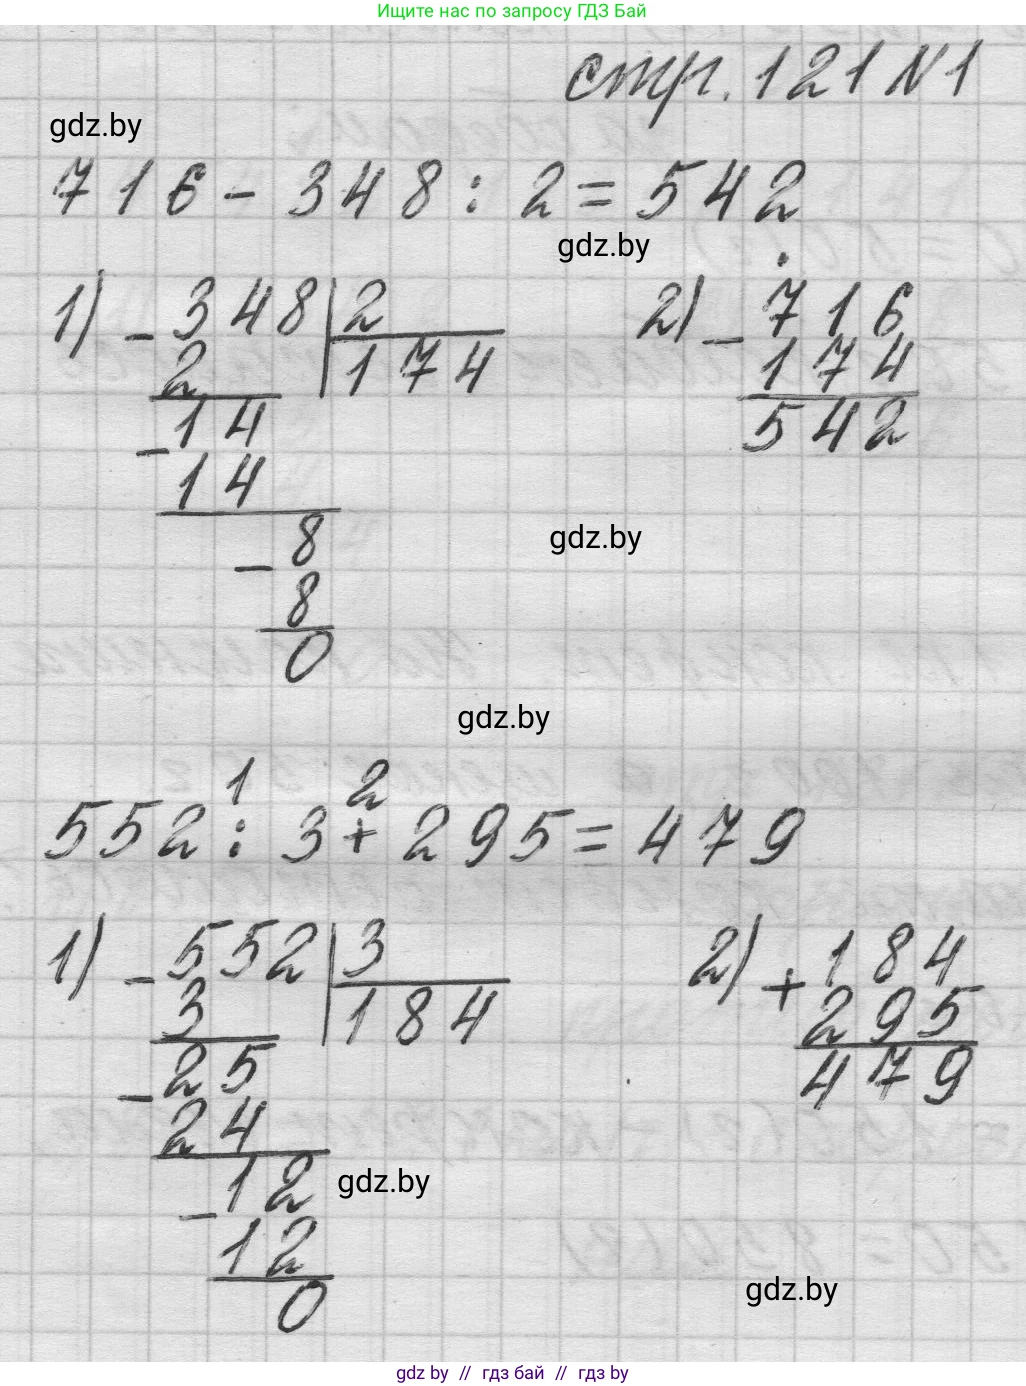 Ищите нас по запросу ГДЗ Бай
стр. 121 №1
gdz.by
716 - 348 : 2 = 542
gdz.by
1) - 348 | 2
2
174
- 14
14
- 8
8
0
2) - 716
174
542
gdz.by
gdz.by
1 2
552 : 3 + 295 = 479
1) - 552 | 3
3
184
- 25
24
- 12
12
0
2) + 184
295
479
gdz.by
gdz.by
gdz by // гдз бай // гдз by